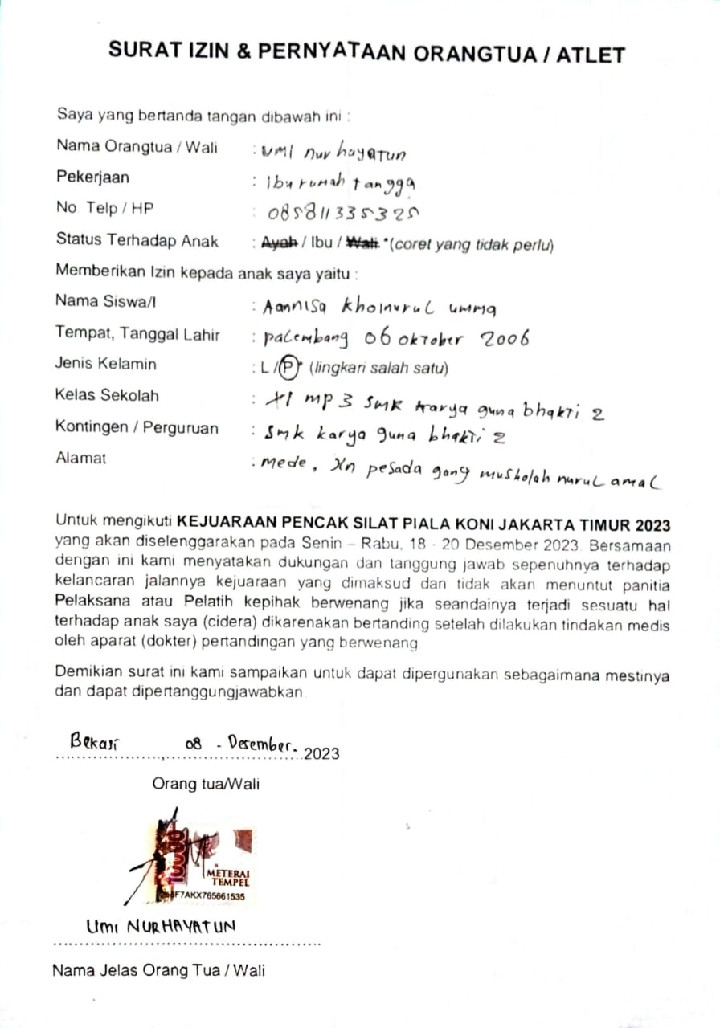 SURAT IZIN & PERNYATAAN ORANGTUA / ATLET
Saya yang bertanda tangan dibawah ini :
Nama Orangtua / Wali : UMI nur hayaTun
Pekerjaan : Ibu rumah tangga
No. Telp / HP : 085811335325
Status Terhadap Anak : Ayah / Ibu / Wali *(coret yang tidak perlu)
Memberikan Izin kepada anak saya yaitu :
Nama Siswa/I : Aannisa khoinurul umma
Tempat, Tanggal Lahir : palembang 06 oktober 2006
Jenis Kelamin : L / P* (lingkari salah satu)
Kelas Sekolah : XI mp 3 smk karya guna bhakti 2
Kontingen / Perguruan : smk karya guna bhakti 2
Alamat : mede, pesada gang musholah nurul amal
Untuk mengikuti KEJUARAAN PENCAK SILAT PIALA KONI JAKARTA TIMUR 2023
yang akan diselenggarakan pada Senin – Rabu, 18 - 20 Desember 2023. Bersamaan
dengan ini kami menyatakan dukungan dan tanggung jawab sepenuhnya terhadap
kelancaran jalannya kejuaraan yang dimaksud dan tidak akan menuntut panitia
Pelaksana atau Pelatih kepihak berwenang jika seandainya terjadi sesuatu hal
terhadap anak saya (cidera) dikarenakan bertanding setelah dilakukan tindakan medis
oleh aparat (dokter) pertandingan yang berwenang
Demikian surat ini kami sampaikan untuk dapat dipergunakan sebagaimana mestinya
dan dapat dipertanggungjawabkan.
Bekasi 08 - Desember- 2023
Orang tua/Wali
10000
METERAI
TEMPEL
F7AKX765661535
Umi NURHAYATUN
Nama Jelas Orang Tua / Wali